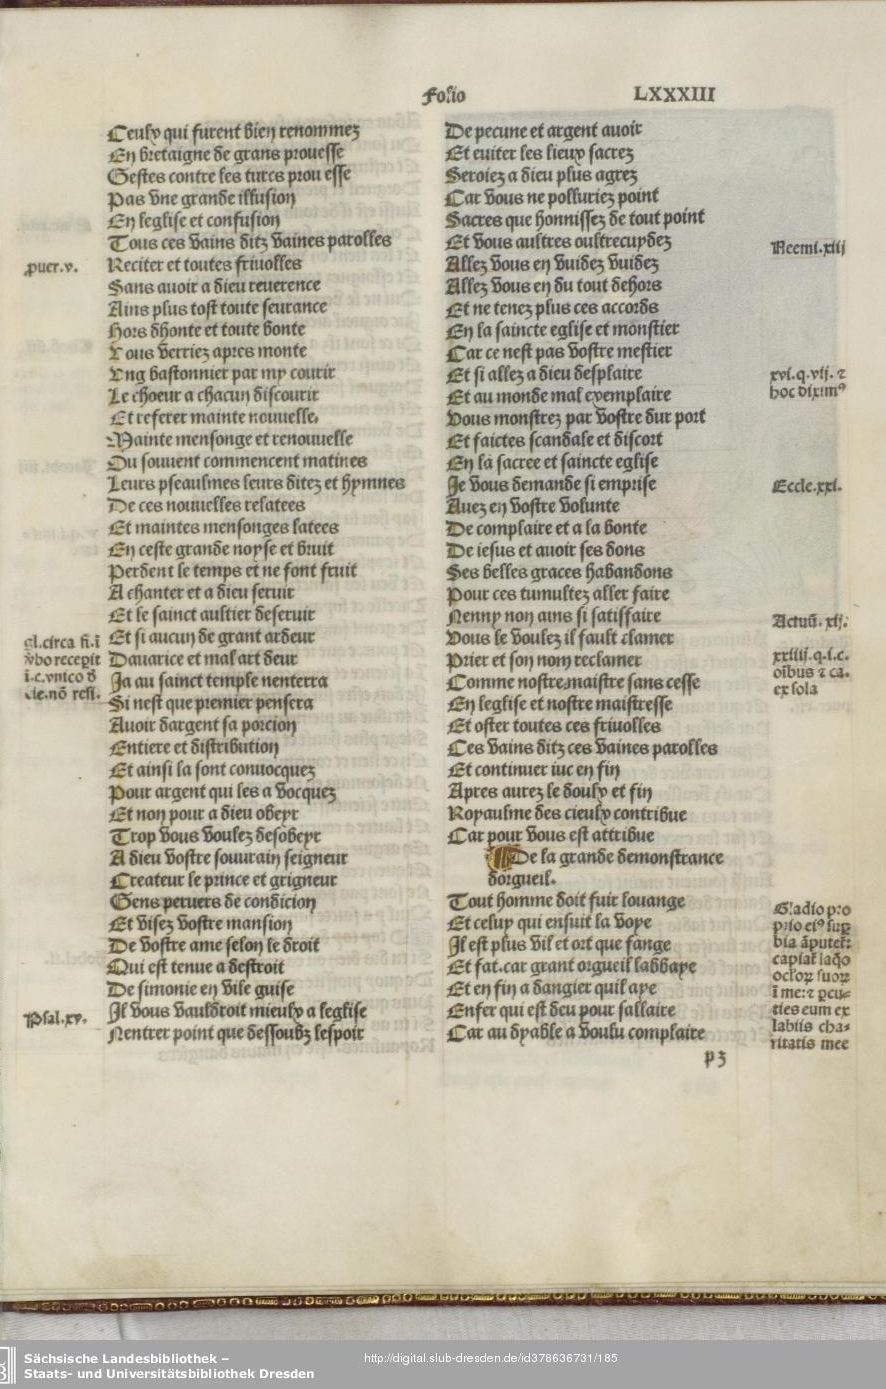 Folio LXXXIII
Ceulx qui furent bien renommez
En bretaigne de grans prouesse
Gestes contre les turcs prou esse
Pas vne grande illusion
En leglise et confusion
Tous ces vains ditz vaines parolles
Reciter et toutes friuolles
Sans auoir a dieu reuerence
Ains plus tost toute seurance
Hors dhonte et toute bonte
Vous verriez apres monte
Vng bastonnier par my courir
Le choeur a chacun discourir
Et referer mainte nouuelle.
Mainte mensonge et renouuelle
Ou souuent commencent matines
Leurs pseaulmes leurs ditez et hymnes
De ces nouuelles relatees
Et maintes mensonges latees
En ceste grande noyse et bruit
Perdent le temps et ne font fruit
A chanter et a dieu seruir
Et le sainct aultier deseruir
Et si aucun de grant ardeur
Dauarice et mal art deur
Ja au sainct temple nenterra
Si nest que premier pensera
Auoir dargent sa porcion
Entiere et distribution
Et ainsi la sont conuocquez
Pour argent qui les a vocquez
Et non pour a dieu obeyr
Trop vous voulez desobeyr
A dieu vostre souurain seigneur
Createur le prince et grigneur
Gens peruers de condicion
Et visez vostre mansion
De vostre ame selon le droit
Qui est tenue a destroit
De simonie en vile guise
Il vous vauldroit mieulx a leglise
Nentrer point que dessoubz lespoir
puer.v.
gl.circa fi.i
v̾bo recepit
i.c.vnico d̾
cle.nō resi.
Psal.xv.
De pecune et argent auoir
Et euiter les lieux sacrez
Seroiez a dieu plus agrez
Car vous ne polluriez point
Sacres que honnissez de tout point
Et vous aultres oultrecuydez
Allez vous en vuidez vuidez
Allez vous en du tout dehors
Et ne tenez plus ces accords
En la saincte eglise et monstier
Car ce nest pas vostre mestier
Et si allez a dieu desplaire
Et au monde mal exemplaire
Vous monstrez par vostre dur port
Et faictes scandale et discort
En la sacree et saincte eglise
Je vous demande si emprise
Auez en vostre volunte
De complaire et a la bonte
De iesus et auoir ses dons
Ses belles graces habandons
Pour ces tumultez aller faire
Nenny non ains si satisfaire
Vous le voulez il fault clamer
Prier et son nom reclamer
Comme nostre maistre sans cesse
En leglise et nostre maistresse
Et oster toutes ces friuolles
Ces vains ditz ces vaines parolles
Et continuer iuc en fin
Apres aurez le doulx et fin
Royaulme des cieulx contribue
Car pour vous est attribue
De la grande demonstrance
dorgueil.
Tout homme doit fuir louange
Et celuy qui ensuit la voye
Il est plus vil et ort que fange
Et fat.car grant orgueil labbaye
Et en fin a dangier quil aye
Enfer qui est deu pour sallaire
Car au dyable a voulu complaire
Neemi.xiij
xvi.q.vij. ⁊
hoc dixim⁹
Eccle.xxi.
Actuū. xij.
xxiiij.q.i.c.
oībus ⁊ ca.
ex sola
Gladio pro
prio ei⁹ suꝑ
bia āputet̾:
capiat̾ laq̄o
oclorꝝ suorꝝ
ī me:⁊ ꝑcu⸗
ties eum ex
labiis cha⸗
ritatis mee
p3
Sächsische Landesbibliothek –
Staats- und Universitätsbibliothek Dresden
http://digital.slub-dresden.de/id378636731/185